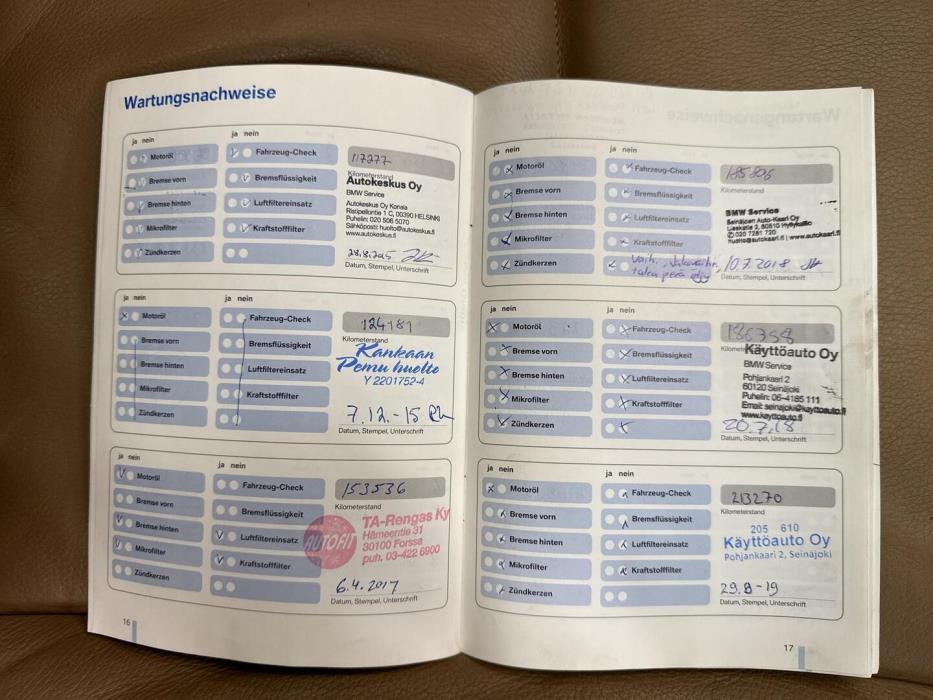 Wartungsnachweise
ja nein
ja nein
Motoröl
Fahrzeug-Check
117277
Bremse vorn
Bremsflüssigkeit
Kilometerstand
Autokeskus Oy
BMW Service
Bremse hinten
Luftfiltereinsatz
Autokeskus Oy Konala
Ristipellontie 1 C, 00390 HELSINKI
Puhelin: 020 506 5070
Mikrofilter
Kraftstofffilter
Sähköposti: huolto@autokeskus.fi
www.autokeskus.fi
Zündkerzen
Datum, Stempel, Unterschrift
ja nein
ja nein
Motoröl
Fahrzeug-Check
124181
Bremse vorn
Bremsflüssigkeit
Kilometerstand
Kankaan
Bremse hinten
Luftfiltereinsatz
Pemu huolto
Y 2201752-4
Mikrofilter
Kraftstofffilter
7.12.-15
Zündkerzen
Datum, Stempel, Unterschrift
ja nein
ja nein
Motoröl
Fahrzeug-Check
153536
Bremse vorn
Bremsflüssigkeit
Kilometerstand
Bremse hinten
Luftfiltereinsatz
AUTOFIT
TA-Rengas Ky
Hämeentie 31
30100 Forssa
puh. 03-422 6900
Mikrofilter
Kraftstofffilter
Zündkerzen
6.4.2017
Datum, Stempel, Unterschrift
16
ja nein
ja nein
Motoröl
Fahrzeug-Check
Kilometerstand
Bremse vorn
Bremsflüssigkeit
BMW Service
Seinäjoen Auto-Kaarl Oy
Bremse hinten
Luftfiltereinsatz
020 7281 720
Mikrofilter
Kraftstofffilter
huolto@autokaarl.fi | www.autokaarl.fi
Zündkerzen
10.7.2018
Datum, Stempel, Unterschrift
ja nein
ja nein
Motoröl
Fahrzeug-Check
186358
Bremse vorn
Bremsflüssigkeit
Käyttöauto Oy
BMW Service
Bremse hinten
Luftfiltereinsatz
Pohjankaari 2
60120 Seinäjoki
Mikrofilter
Kraftstofffilter
Puhelin: 06-4185 111
Email: seinajoki@kayttoauto.fi
www.kayttoauto.fi
Zündkerzen
20.7.18
Datum, Stempel, Unterschrift
ja nein
ja nein
Motoröl
Fahrzeug-Check
213270
Kilometerstand
Bremse vorn
Bremsflüssigkeit
205 610
Bremse hinten
Luftfiltereinsatz
Käyttöauto Oy
Pohjankaari 2, Seinäjoki
Mikrofilter
Kraftstofffilter
Zündkerzen
29.8-19
Datum, Stempel, Unterschrift
17